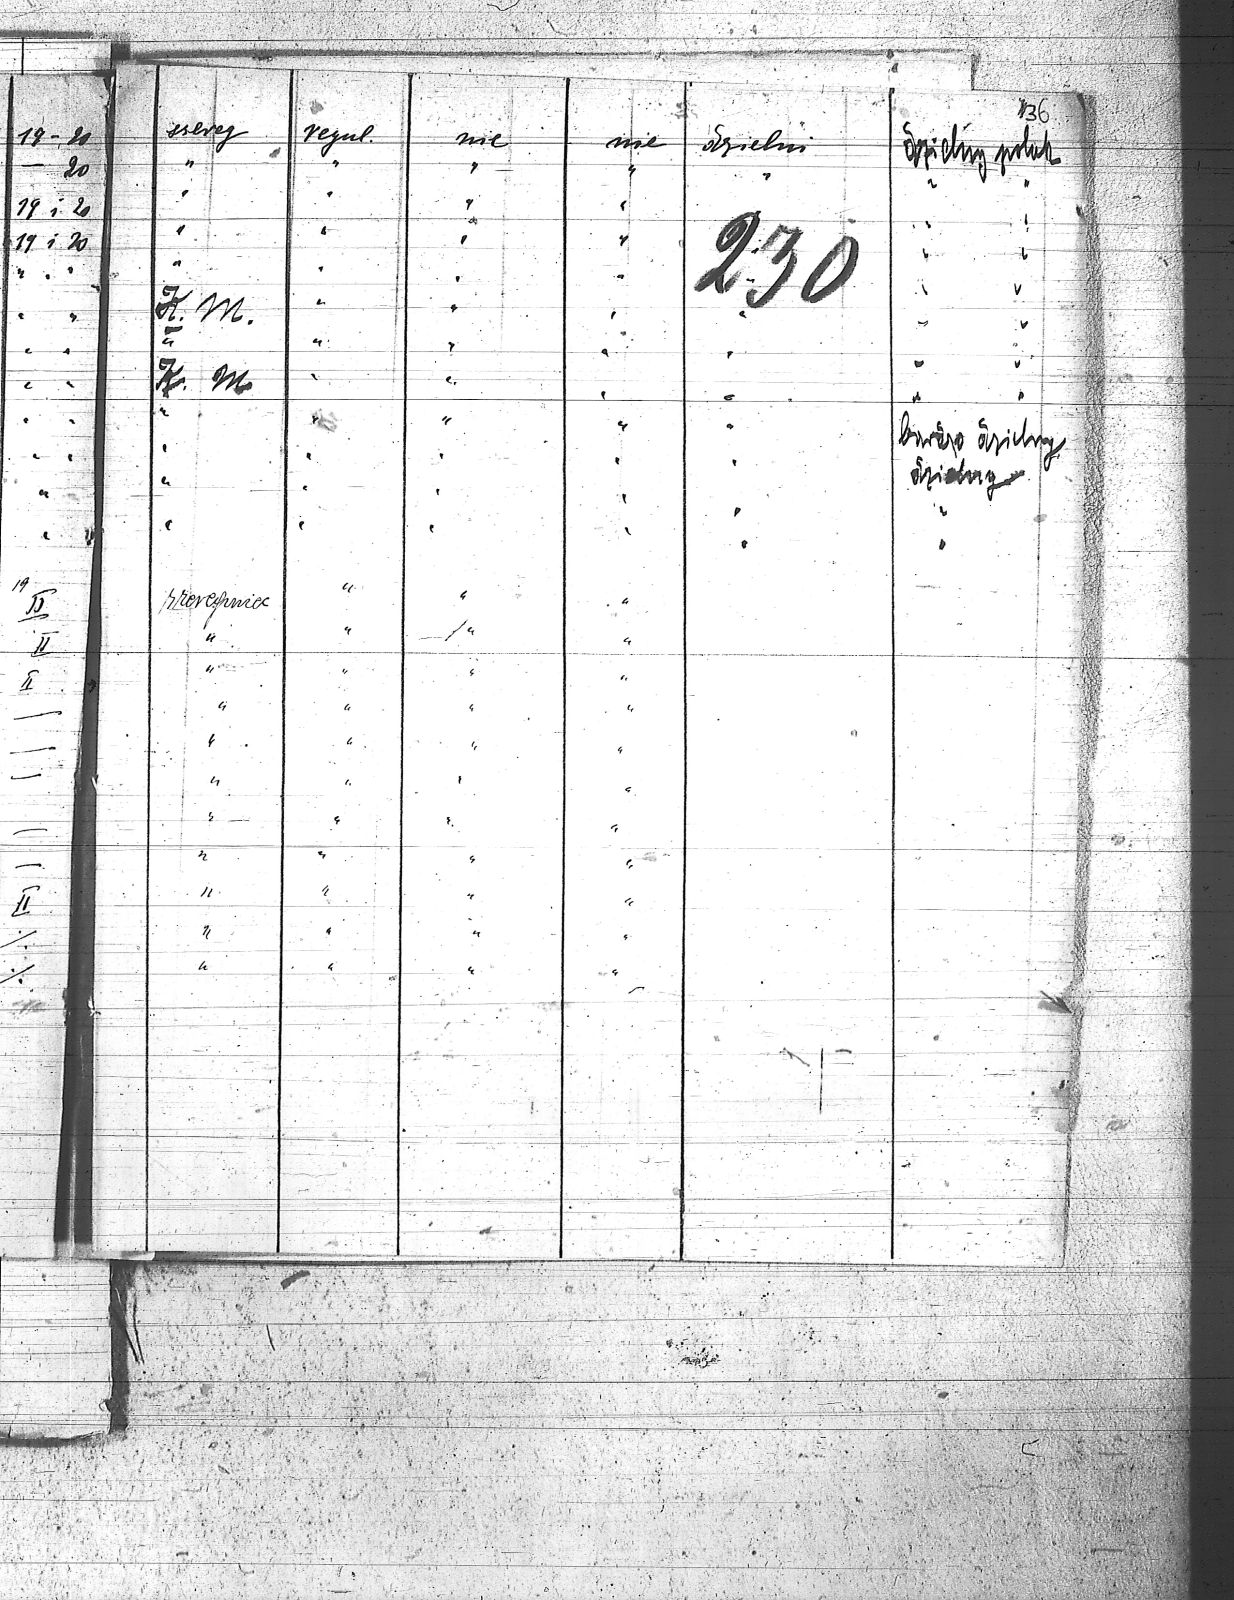 136
19-20 szereg regul. nie nie dzielni dzielny polak
— 20 " " " " " " "
19 i 20 " " " " " "
19 i 20 " " " " " "
230
" " " " " " " "
" " K. M. " " " " " "
" " " " " " " " "
" " K. M. " " " " " "
" " " " " " " bardzo dzielny
" " " " " " " dzielny
" " " " " " "
" " " " " " "
19
II szeregowiec " " "
II " " " "
II " " " "
" " " "
" " " "
" " " "
" " " "
" " " "
II " " " "
·/· " " " "
·/· " " " "